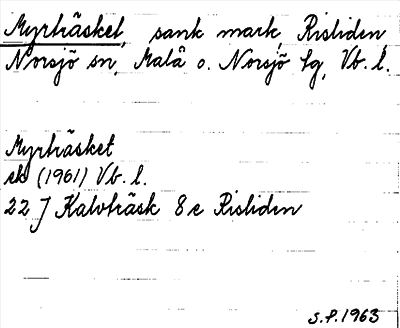 Myrträsket, sank mark, Risliden,
Norsjö sn, Malå o. Norsjö tg, Vb. l.
Myrträsket
ek (1961) Vb. l.
22 J Kalvträsk 8 e Risliden
S.P. 1963